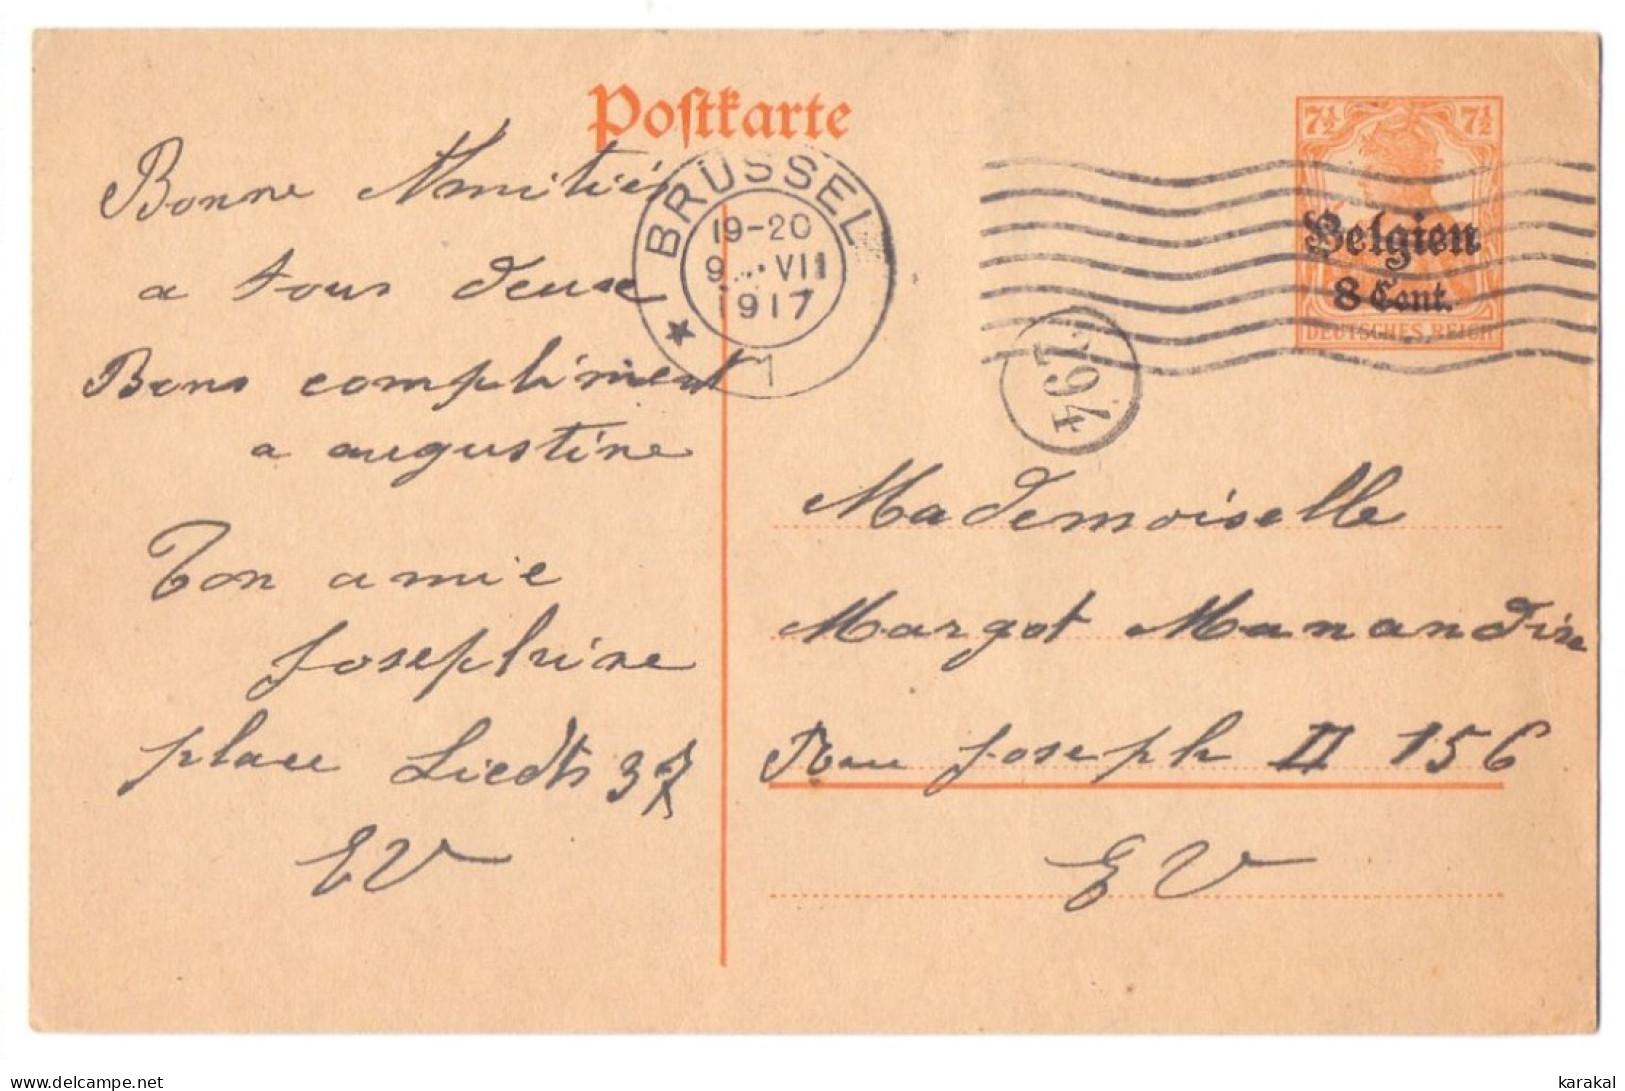 Postkarte
7½ 7½
Belgien
8 Cent.
DEUTSCHES REICH
BRÜSSEL
19-20
9 VII
1917
1
194
Bonne Amitiés
a tous deux
Bons compliment
a augustine
Ton amie
Josephine
place Liedts 37
EV
Mademoiselle
Margot Manandise
Rue Joseph II 156
EV
www.delcampe.net
karakal